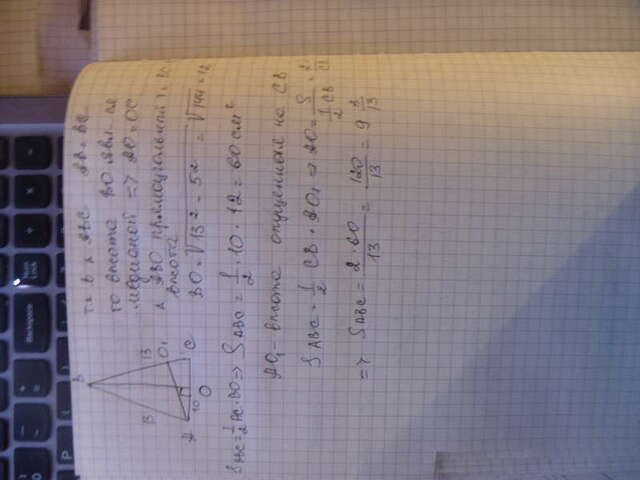 Backspace
Num Lock
÷
×
P
B
т.к в △ ABC AB = BC
то высота BO явл-ся
медианой => AO = OC
13
13
O₁
△ ABO прямоугольный т.к BO
высота
A
C
10
O
BO = √13² - 5² = √144 = 12
S ABC = 1/2 AC · BO => S ABC = 1/2 · 10 · 12 = 60 см²
AO₁ - высота опущенная на CB
S ABC = 1/2 CB · AO₁ => AO = S / 1/2 CB
=> S ABC = 2 · 60 / 13 = 120 / 13 = 9 3/13